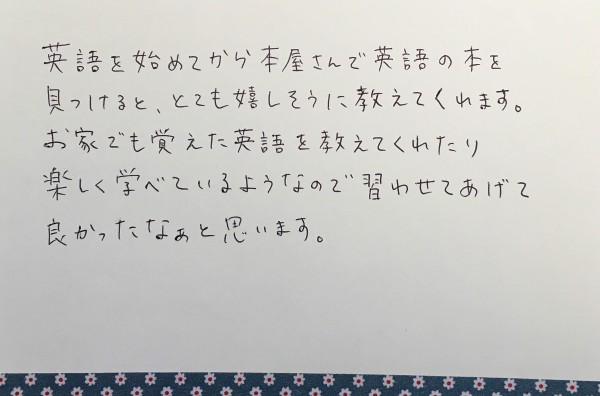 英語を始めてから本屋さんで英語の本を
見つけると、とても嬉しそうに教えてくれます。
お家でも覚えた英語を教えてくれたり
楽しく学べているようなので習わせてあげて
良かったなぁと思います。